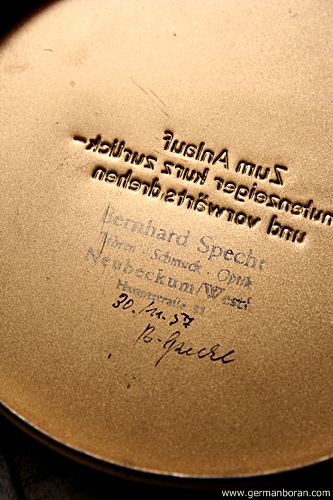 Zum Anlauf
nutenzeiger kurz zurück-
und vorwärts drehen
Bernhard Specht
Uhren - Schmuck - Optik
Neubeckum/Westf
Hauptstraße
30. 11. 57
www.germanboran.com